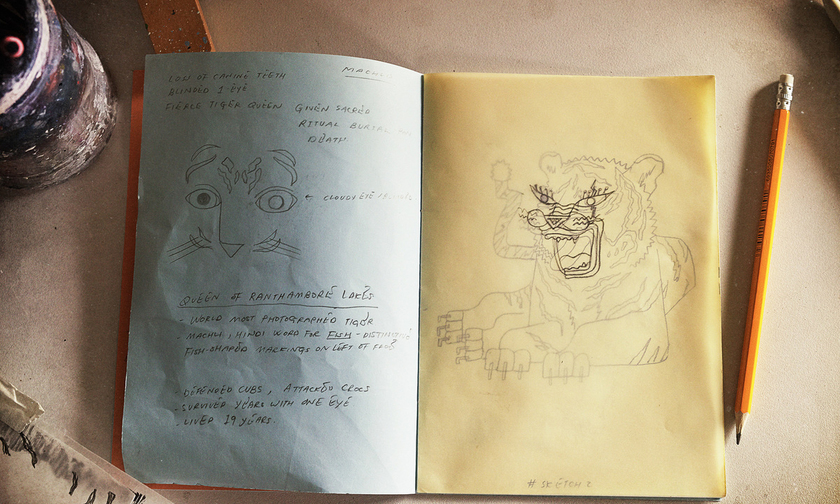 LOSS OF CANINE TEETH
BLINDED 1 EYE
FIERCE TIGER QUEEN GIVEN SACRED
RITUAL BURIAL
DEATH
← CLOUDY EYE
QUEEN OF RANTHAMBORE LAKES
- WORLD MOST PHOTOGRAPHED TIGER
- MACHLI, HINDI WORD FOR FISH - DISTINCTIVE
FISH-SHAPED MARKINGS ON LEFT OF FACE
- DEFENDED CUBS, ATTACKED CROCS
- SURVIVED YEARS WITH ONE EYE
- LIVED 19 YEARS.
# SKETCH 2